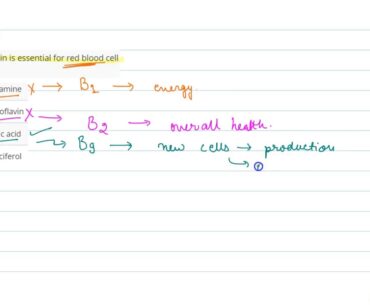 in is essential for red blood cell
amine X → B1 → energy.
oflavin X → B2 → overall health.
ic acid ✓ → B9 → new cells → production
ciferol